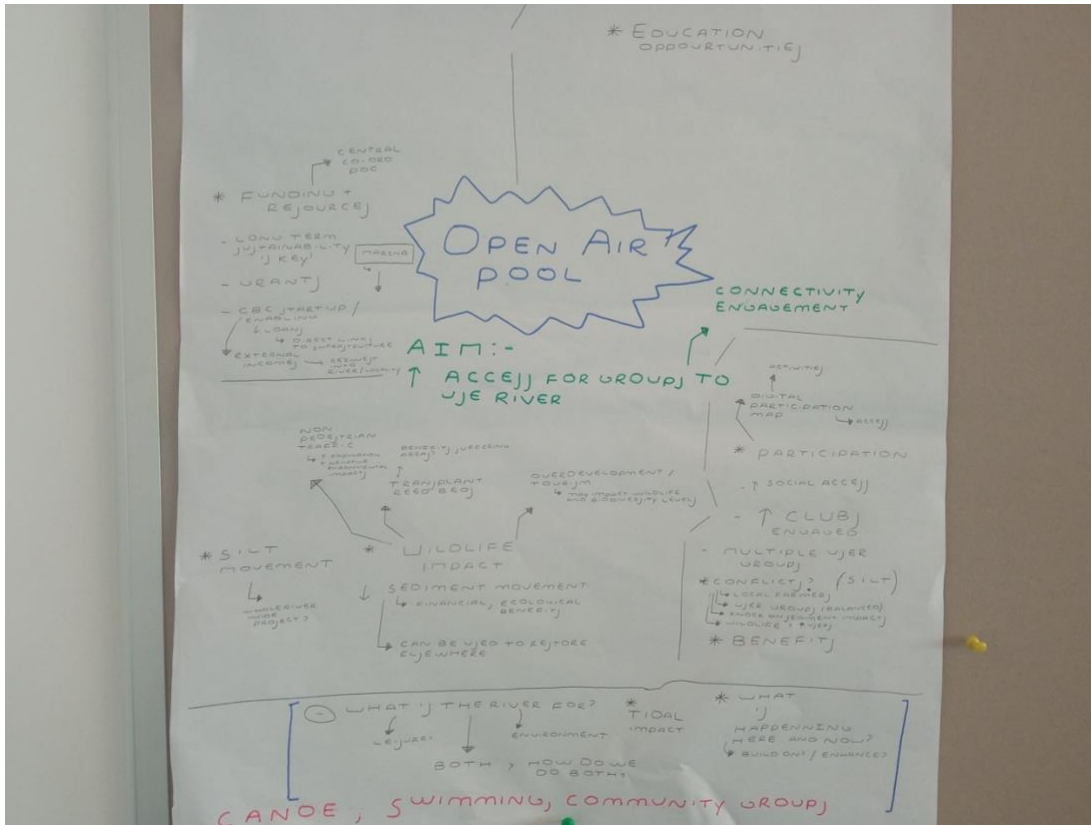 * EDUCATION
OPPOURTUNITIES
CENTRAL
CO-ORD
DOC
* FUNDING +
RESOURCES
- LONG TERM
SUSTAINABILITY
'IS KEY'
MARINA
- GRANTS
- CBC STARTUP /
ENABLING
↓ LOANS
↳ DIRECT LINKS
EXTERNAL
INCOMES
OPEN AIR
POOL
CONNECTIVITY
ENGAGEMENT
AIM:-
↑ ACCESS FOR GROUPS TO
USE RIVER
ACTIVITIES
DIGITAL
PARTICIPATION
MAP
↳ ACCESS
* PARTICIPATION
- ↑ SOCIAL ACCESS
- ↑ CLUBS
ENGAGED
- MULTIPLE USER
GROUPS
* CONFLICTS? (SILT)
↳ LOCAL FARMERS
↳ USER GROUPS (BALANCED)
↳ KNOCK ON SEDIMENT IMPACTS
↳ WILDLIFE + USERS
* BENEFITS
NON
PEDESTRIAN
TRAFFIC
TRANSPLANT
REED BEDS
OVERDEVELOPMENT /
TOURISM
↳ MAY IMPACT WILDLIFE
AND BIODIVERSITY LEVELS
* SILT
MOVEMENT
↳ WHOLE RIVER
WIDE
PROJECT?
* WILDLIFE
IMPACT
↓ SEDIMENT MOVEMENT
↳ FINANCIAL, ECOLOGICAL
BENEFITS
↳ CAN BE USED TO RESTORE
ELSEWHERE
- WHAT IS THE RIVER FOR?
LEISURE?
ENVIRONMENT
BOTH, HOW DO WE
DO BOTH?
* TIDAL
IMPACT
* WHAT
IS
HAPPENNING
HERE AND NOW?
↳ BUILD ON? / ENHANCE?
CANOE, SWIMMING, COMMUNITY GROUPS